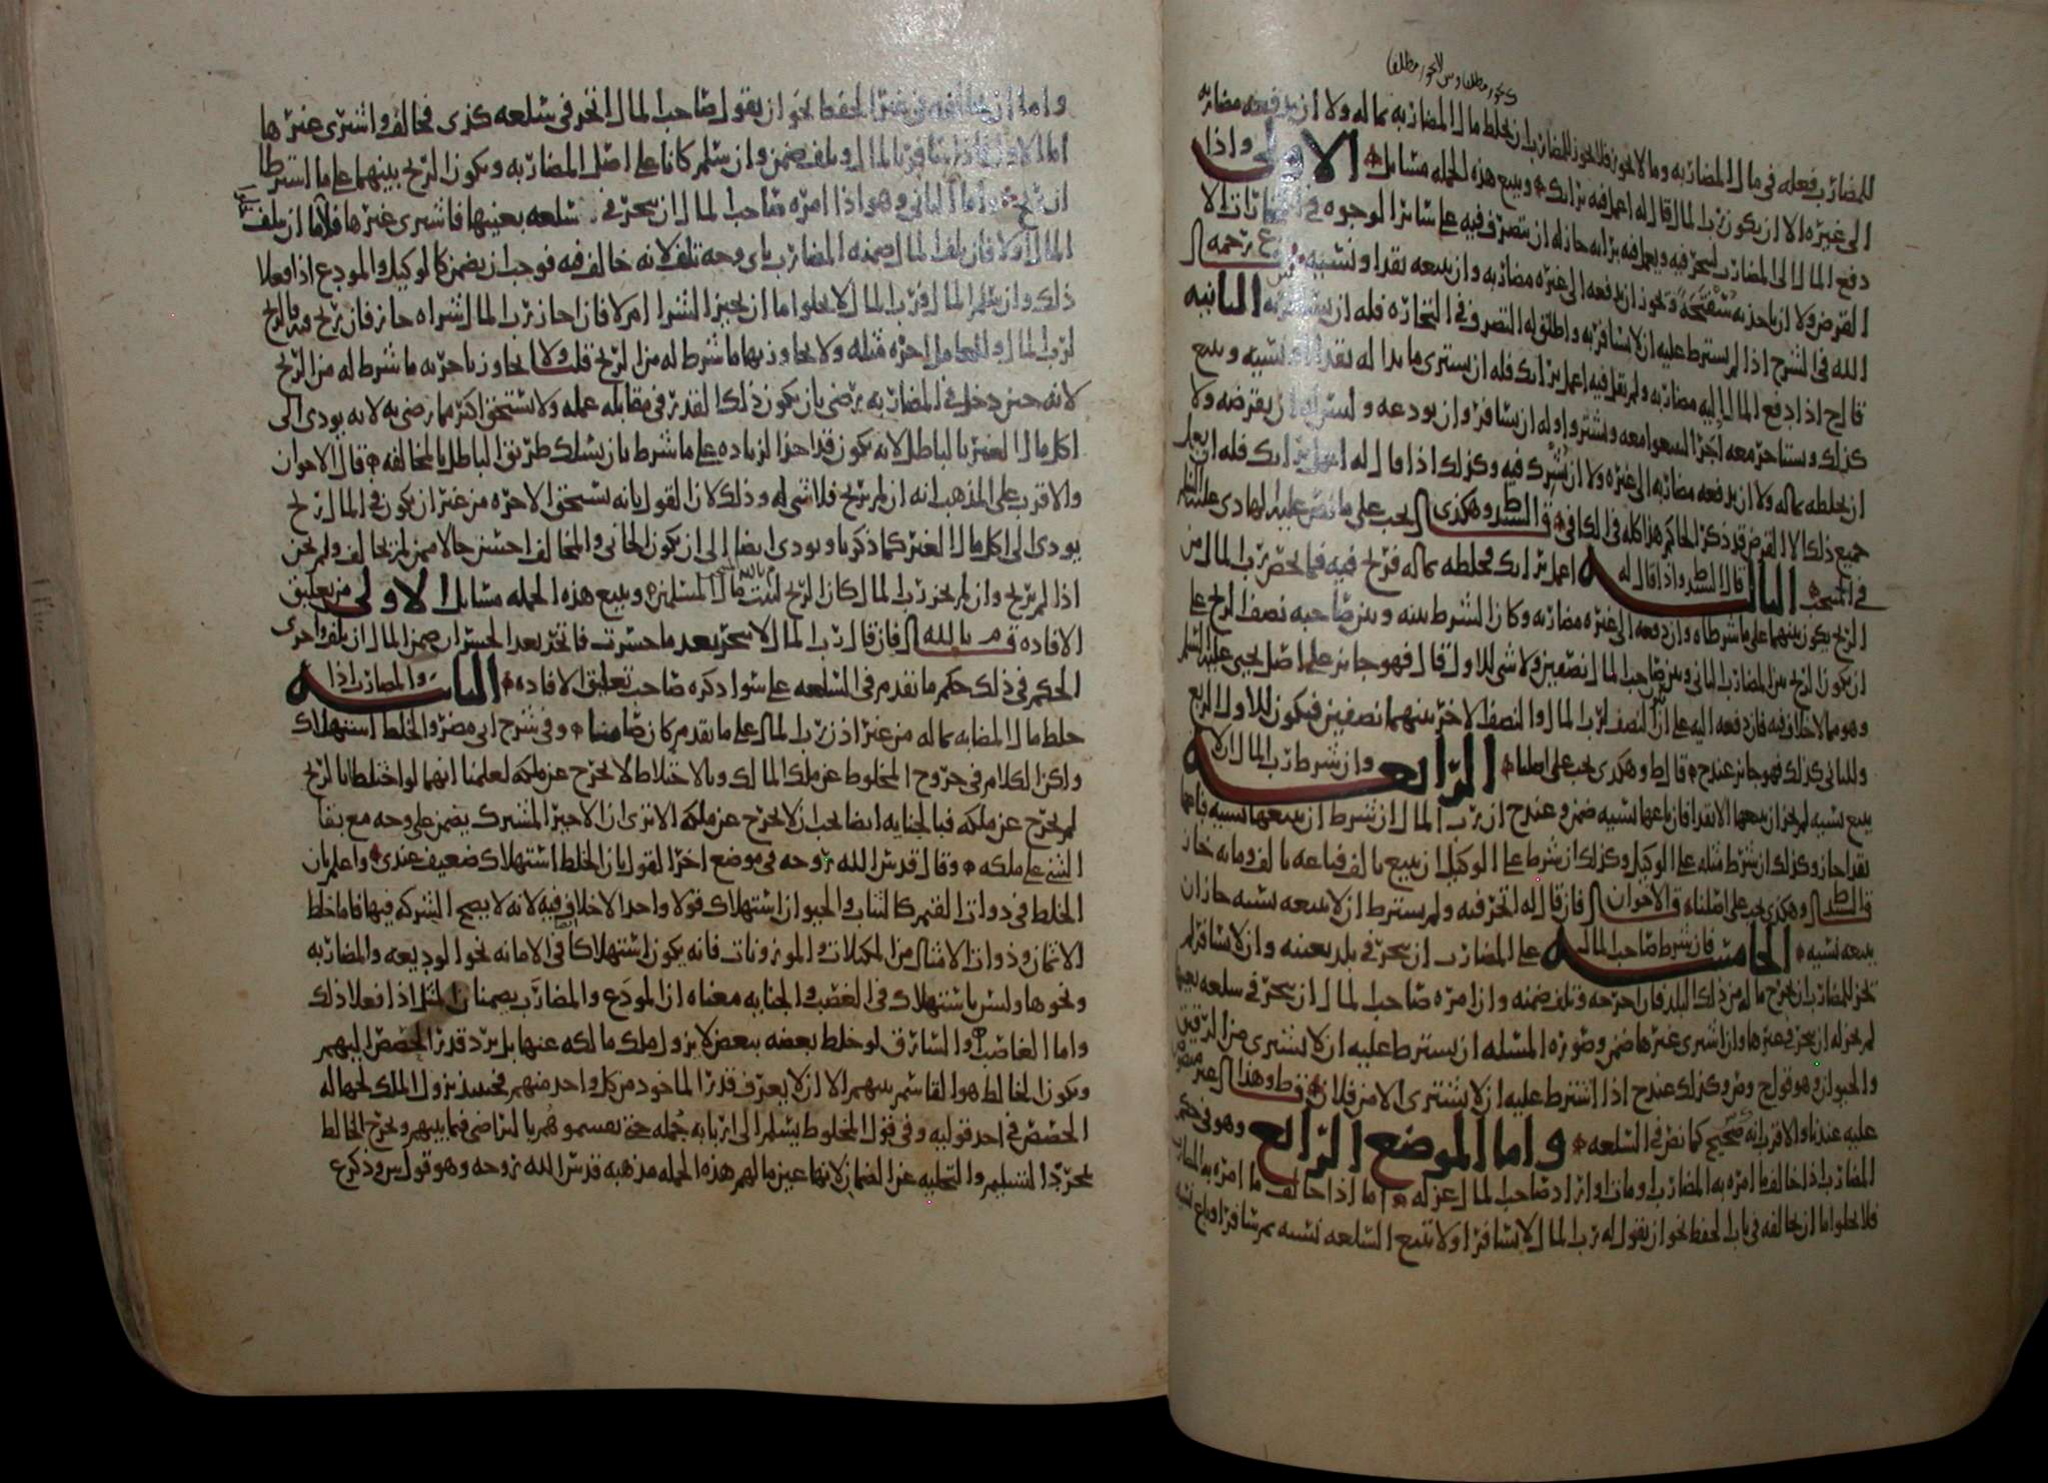 للمضارب فعله في مال المضاربه وما لا يجوز فلا يجوز للمضارب ان يخلط مال المضاربه بماله ولا ان يدفعه مضاربه
الى غيره الا ان يكون رب المال قال له اعمل فيه برايك ويتبع هذه الجمله مسايل الاولى واذا
دفع المال الى المضارب ليتجر فيه ويعمل فيه برايه جاز له ان يتصرف فيه على ساير الوجوه في التجارات الا
القرض ولا ان ياخذ به سفتجة ويجوز ان يدفعه الى غيره مضاربه وان يبيعه نقدا ونسيه
الله في الشرح اذا لم يشترط عليه ان لا يسافر به واطلق له التصرف في التجاره فله ان يسافر به الثانيه
قال ح اذا دفع المال اليه مضاربه ولم يقل فيه اعمل برايك فله ان يشتري ما بدا له نقدا او نسيه ويبيع
كذلك ويستاجر معه اجرا ليبيعوا معه ويشتروا وله ان يسافر وان يودعه وليس له ان يقرضه ولا
ان يخلطه بماله ولا ان يدفعه مضاربه الى غيره ولا ان يشرك فيه وكذلك اذا قال له اعمل برايك فله ان يعمل
جميع ذلك الا القرض قد ذكر الحاكم هذا كله في الكافي قال السيد ط وهكذى يجب على ما نص عليه الهادي عليه السلم
في المنتخب الثالثه قال السيد ط واذا قال له اعمل برايك فخلطه بماله فربح فيه فما يخص رب المال من
الربح يكون بينهما على ما شرطاه وان دفعه الى غيره مضاربه وكان الشرط بينه وبين صاحبه نصف الربح على
ان يكون الربح بين المضارب الثاني وبين صاحب المال نصفين ولا شي للاول قال فهو جايز على اصل يحيى عليه السلم
وهو مما لا خلاف فيه فان دفعه اليه على ان النصف لرب المال والنصف الاخر بينهما نصفين فيكون للاول الربع
وللثاني كذلك فهو جايز عند ح قال ط وهكذى يجب على اصلنا الرابعه وان شرط رب المال ان لا
يبيع بنسيه لم يجز ان يبيعها الا نقدا فان باعها بنسيه ضمن وعند ح ان رب المال ان شرط ان يبيعها بنسيه فباعها
نقدا جاز وكذلك ان شرط مثله على الوكيل وكذلك ان شرط على الوكيل ان يبيع بالف فباعه بالف ومايه جاز
قال السيد ط وهكذى يجب على اصلنا قال الاخوان فان قال له اتجر فيه ولم يشترط ان لا يبيعه بنسيه جاز ان
يبيعه بنسيه الخامسه فان شرط صاحب المال على المضارب ان يتجر في بلد بعينه وان لا يسافر لم
يجز للمضارب ان يخرج ماله من ذلك البلد فان اخرجه وتلف ضمنه وان امره صاحب المال ان يتجر في سلعه بعينها
لم يجز له ان يتجر في غيرها وان اشترى غيرها ضمن وصوره المسله ان يشترط عليه ان لا يشتري من الرقيق
والحيوان وهو قول ح وص وكذلك عند ح اذا اشترط عليه ان لا يشتري الا من فلان قال ط وهذا غير
عليه عندنا والاقرب انه صحيح كما نص في السلعه واما الموضع الرابع وهو في حكم
المضارب اذا خالف ما امره به المضارب ومتى اراد صاحب المال عزله اما اذا خالف ما امره به
فلا يخلوا اما ان يخالفه في باب الحفظ نحو ان يقول له رب المال لا تسافر او لا تبيع السلعه بنسيه ثم سافر او باع بنسيه
واما ان يخالفه في غير الحفظ نحو ان يقول صاحب المال اتجر في سلعه كذى فخالف واشترى غيرها
اما الاول فاذا سافر بالمال وتلف ضمن وان سلم كانا على اصل المضاربه ويكون الربح بينهما على ما اشترطا
ان ربح واما الثاني وهو اذا امره صاحب المال ان يتجر في سلعه بعينها فاشترى غيرها فلا ما ان يتلف
المال اولا فان تلف المال ضمنه المضارب باي وجه تلف لانه خالف فيه فوجب ان يضمن كالوكيل والمودع اذا فعلا
ذلك وان سلم المال فرب المال لا يخلوا اما ان يجيز الشرا ام لا فان اجاز رب المال شراه جاز فان ربح فيه فالربح
لرب المال وللعامل اجره مثله ولا يجاوز بها ما شرط له من الربح قلت ولا يجاوز باجرته ما شرط له من الربح
لانه حين دخل في المضاربه رضي بان يكون ذلك القدر في مقابله عمله ولا يستحق اكثر مما رضي به لانه يودي الى
اكل مال الغير بالباطل لانه يكون قد اخذ الزياده على ما شرط بان يسلك طريق الباطل بالمخالفه قال الاخوان
والاقرب على المذهب انه ان لم يربح فلا شي له وذلك لان القول بانه يستحق الاجره من غير ان يكون في المال ربح
يودي الى اكل مال الغير كما ذكرنا ويودي ايضا الى ان يكون الجاني والمخالف احسن حالا ممن لم يخالف ولم يجن
اذا لم يربح وان لم يجز رب المال كان الربح لبيت مال المسلمين ويتبع هذه الجمله مسايل الاولى من تعليق
الافاده قال م بالله فان قال رب المال لا تتجر بعد ما خسرت فاتجر بعد الخسران ضمن المال ان تلف واجرى
الحكم في ذلك حكم ما تقدم في السلعه على سوا ذكره صاحب تعليق الافاده الثانيه والمضارب اذا
خلط مال المضابه بماله من غير اذن رب المال على ما تقدم كان ضامنا وفي شرح ابي مضر والخلط استهلاك
ولكن الكلام في خروج المخلوط عن ملك المالك وبالاختلاط لا يخرج عن ملكه لعلمنا انهما لو اختلطا بالريح
لم يخرج عن ملكه فبالجنايه ايضا يجب ان لا يخرج عن ملكه الا ترى ان الاجير المشترك يضمن على وجه مع بقا
الشي على ملكه وقال قدس الله روحه في موضع اخر القول بان الخلط استهلاك ضعيف عندي واعلم بان
الخلط في ذوات القيم كالثياب والحيوان استهلاك قولا واحدا لا خلاف فيه لانه لا يصح الشركه فيها فاما خلط
الاثمان وذوات الامثال من المكيلات والموزونات فانه يكون استهلاكا في الامانه نحو الوديعه والمضاربه
ونحوها وليس باستهلاك في الغصب والجنايه معناه ان المودع والمضارب يضمنان المثل اذا فعلا ذلك
واما الغاصب والسارق لو خلط بعضه ببعض لا يزول ملك مالكه عنها بل يرد قدر الحصص اليهم
ويكون الخالط هو القاسم بينهم الا ان لا يعرف قدر الماخود من كل واحد منهم فحينيذ يزول الملك لجهاله
الحصص في احد قوليه وفي قول المخلوط يسلم الى اربابه جمله حتى يقسموهم بالتراضي فيما بينهم ويخرج الخالط
بمجرد التسليم والتخليه عن الضمان لانها عين مالهم هذه الجمله مذهبه قدس الله روحه وهو قول س وذكر ع